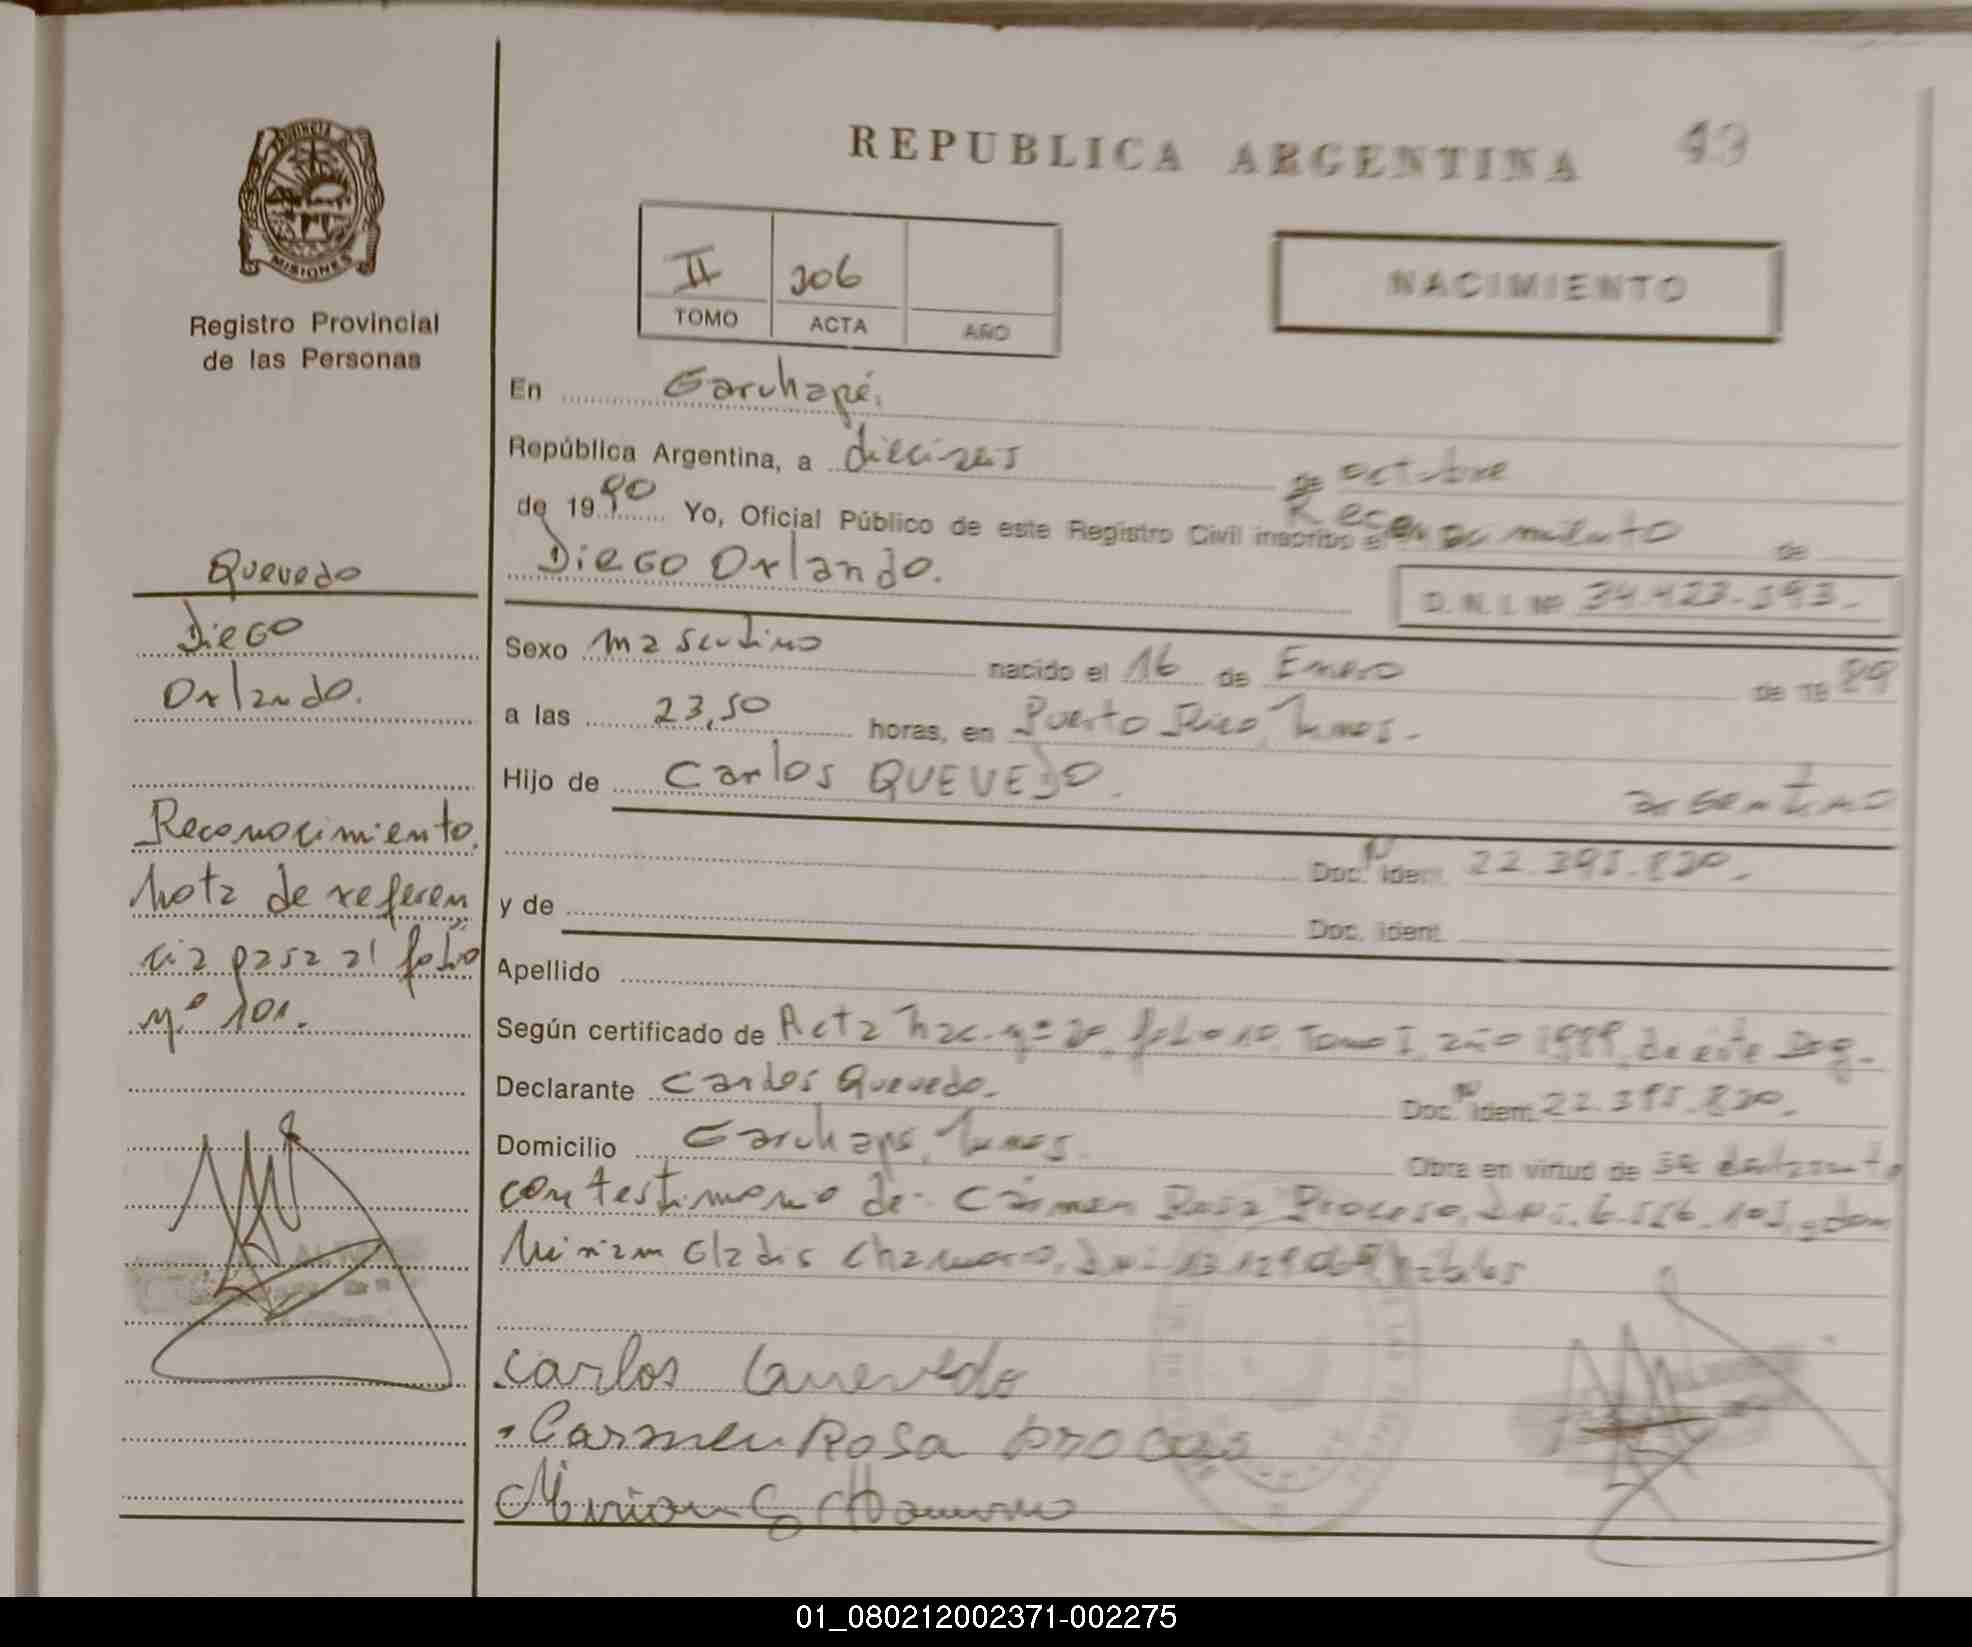 REPUBLICA ARGENTINA
PROVINCIA
MISIONES
Registro Provincial
de las Personas
II 306
TOMO ACTA AÑO
NACIMIENTO
En Garuhapé,
República Argentina, a dieciseis de octubre
de 1990 Yo, Oficial Público de este Registro Civil inscribo el Reconocimiento de
Diego Orlando.
D.N.I. Nº 34.423.593.-
Sexo masculino nacido el 16 de Enero de 19 89
a las 23,50 horas, en Puerto Rico,
Hijo de Carlos QUEVEDO. argentino
Doc. Ident. 22.395.820.-
y de Doc. Ident.
Apellido
Según certificado de Acta nac. nº 20, folio 10, Tomo I, año 1989, de este
Declarante Carlos Quevedo. Doc. Ident. 22.395.820.
Domicilio Garuhapé, Obra en virtud de
con testimonio de: Cármen Rosa
Miriam Gladis
Carlos Quevedo
Carmen Rosa
Quevedo
Diego
Orlando.
Reconocimiento.
Nota de referen
cia pasa al folio
nº 101.
01_080212002371-002275